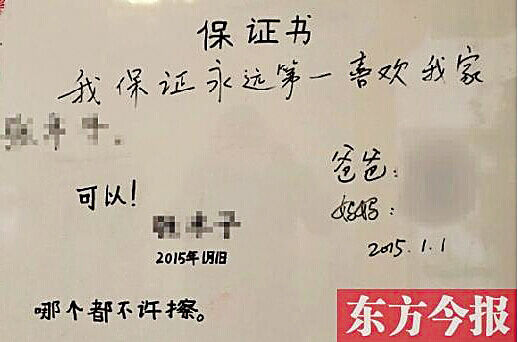 保证书
我保证永远第一喜欢我家
爸爸:
可以!
妈妈:
2015年1月1日
2015.1.1
哪个都不许擦。
东方今报